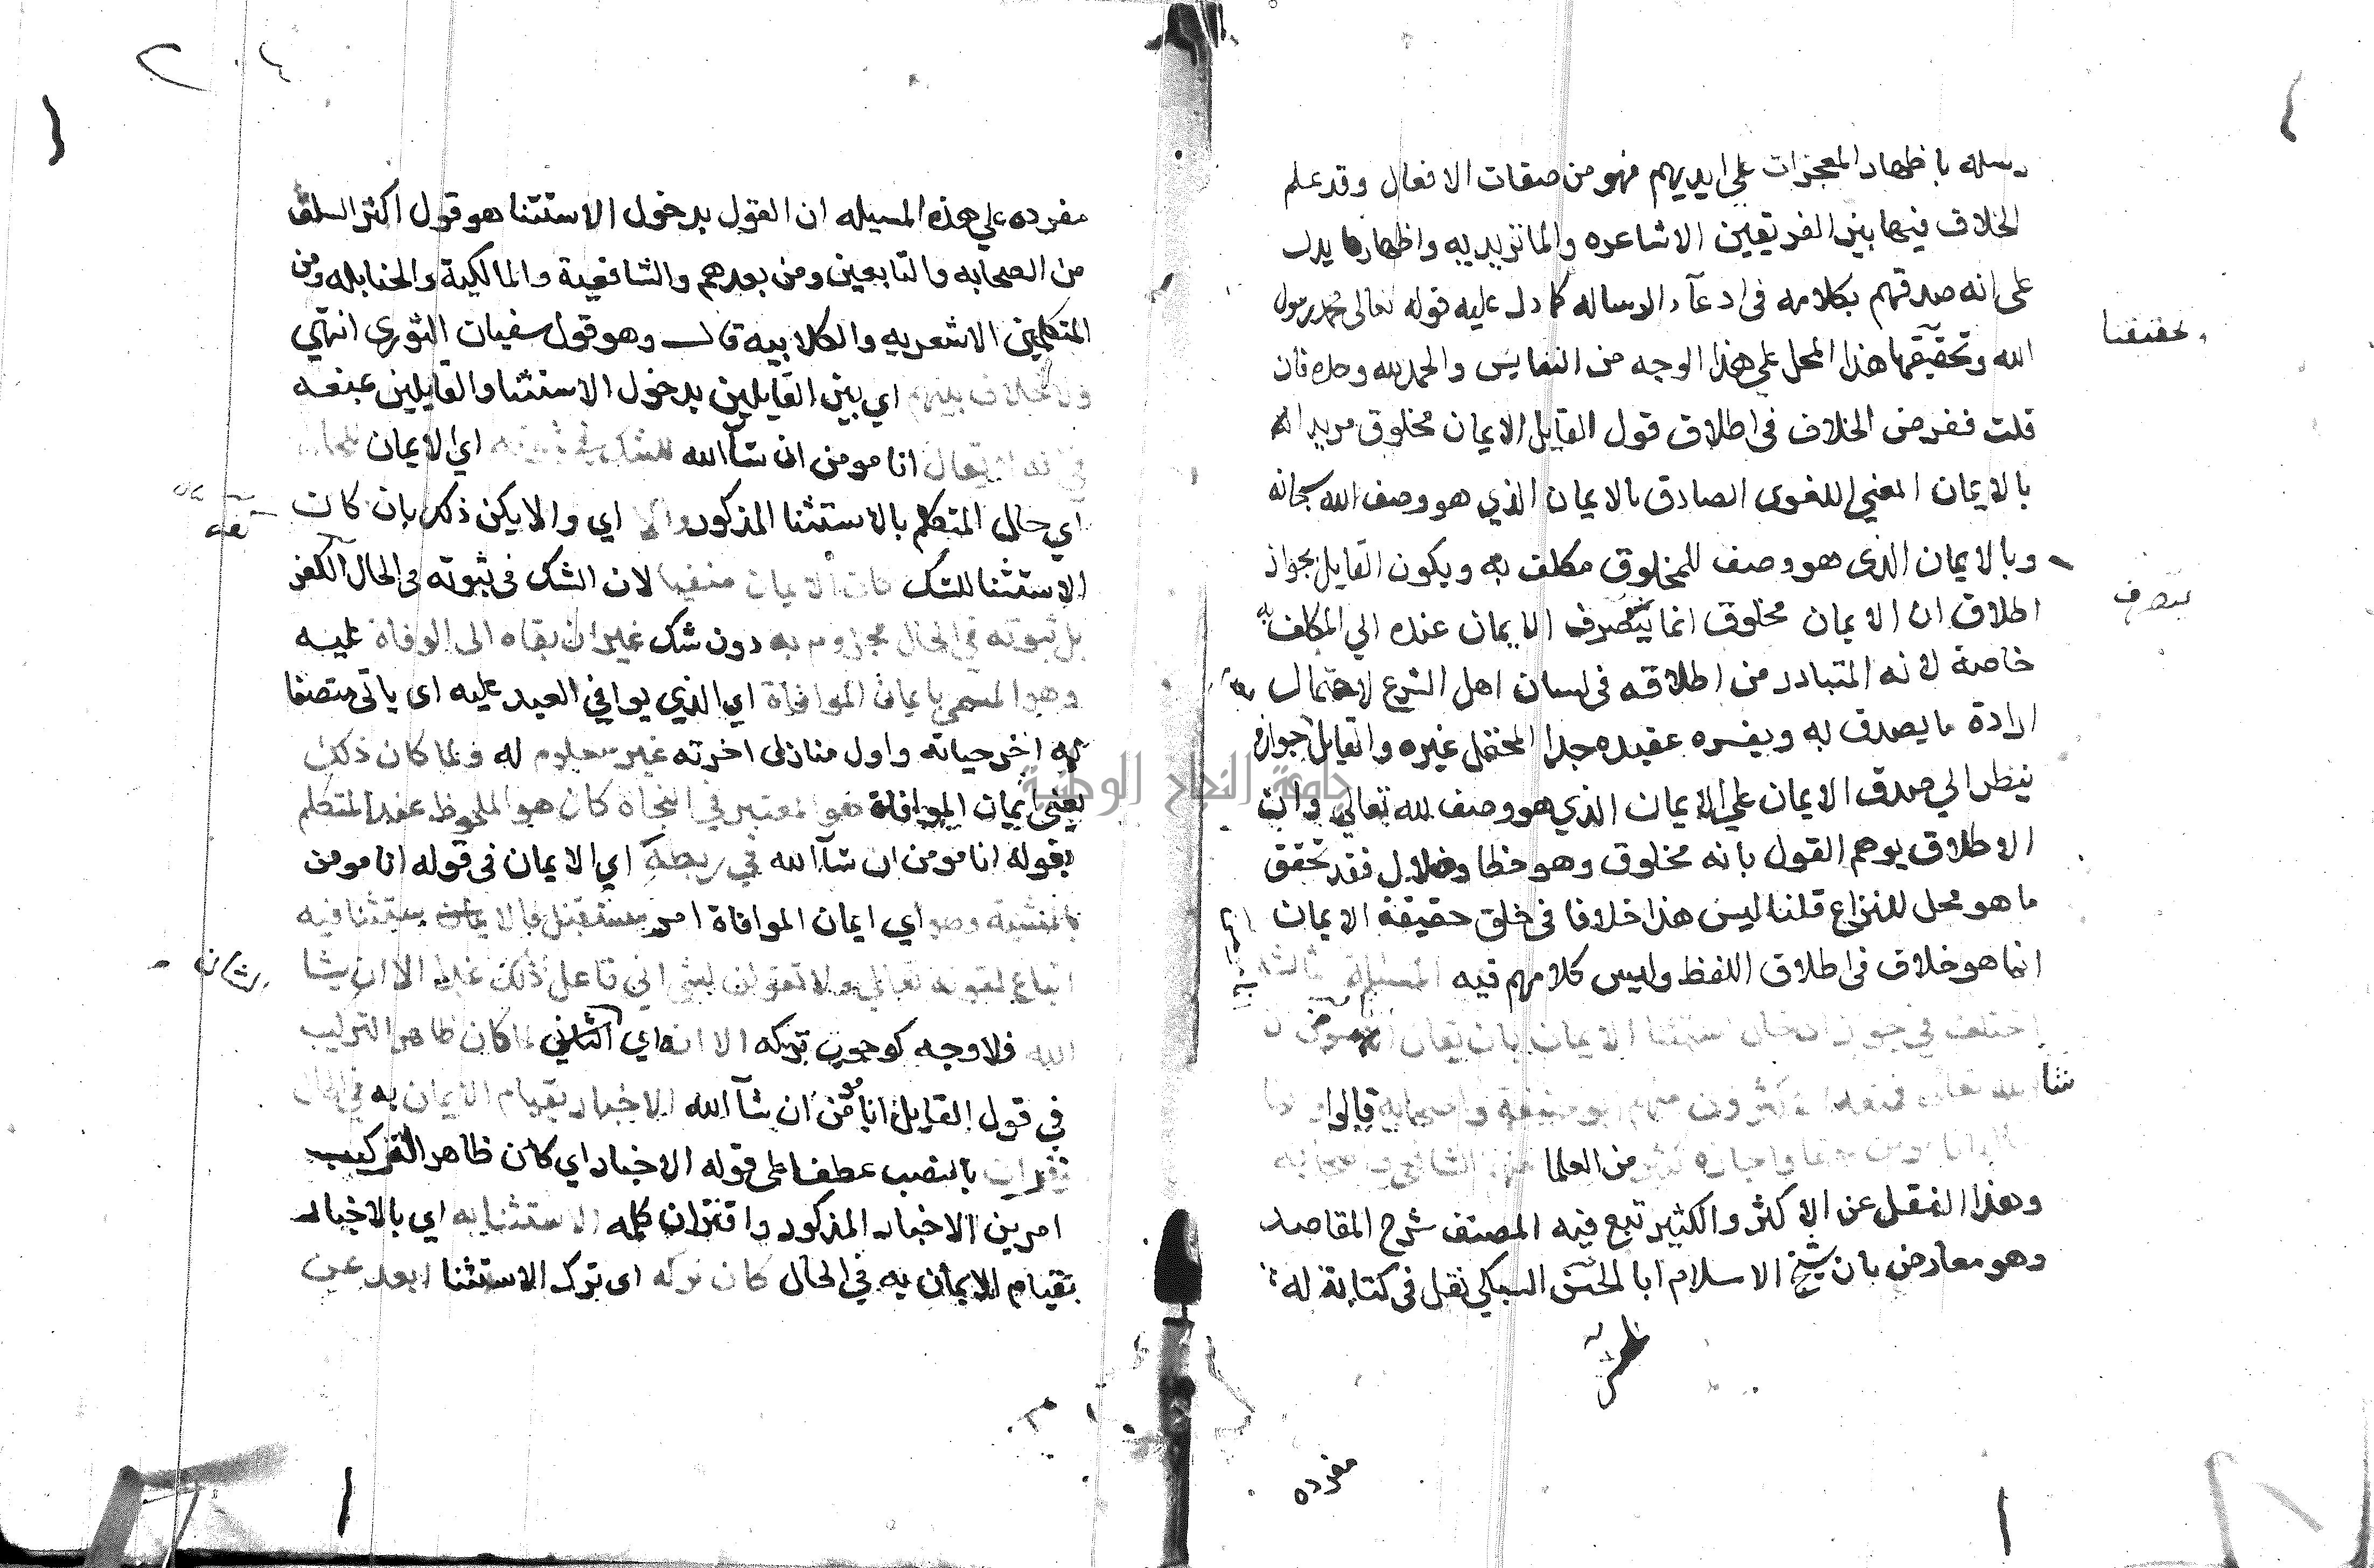 رسله باظهار المعجزات على ايديهم فهو من صفات الافعال وقد علم
الخلاف فيها بين الفريقين الاشاعره والماتريديه واظهارها يدل
على انه صدقهم بكلامه في ادعآء الرساله كما دل عليه قوله تعالى محمد رسول
الله وتحقيقها هذا المحل على هذا الوجه من النفايس والحمد لله وحده فان
قلت ففرض الخلاف في اطلاق قول القايل الايمان مخلوق مريدا
بالايمان المعني اللغوى الصادق بالايمان الذي هو وصف الله سبحانه
وبالايمان الذى هو وصف للمخلوق مكلف به ويكون القايل بجواز
اطلاق ان الايمان مخلوق انما يتصرف الايمان عنده الي المكلف به
خاصة لانه المتبادر من اطلاقه في لسان اهل الشرع لاحتمال
ارادة ما يصدق به ويفسره عقيده جدا المحتمل غيره والقايل جوازه
ينظر الي صدق الايمان علي الايمان الذي هو وصف لله تعالي وان
الاطلاق يوهم القول بانه مخلوق وهو خطا وضلال فقد تحقق
ما هو محل للنزاع قلنا ليس هذا خلافا في خلق حقيقة الايمان
انما هو خلاف في اطلاق اللفظ وليس كلامهم فيه المسئلة
اختلف في جواز ادخال استثنا الايمان بان يقال انا مومن ان
شا
قالوا
من العلما
وهذا النقل عن الاكثر والكثير تبع فيه المصنف شرح المقاصد
وهو معارض بان شيخ الاسلام ابا الحسن السبكي نقل في كتابة له
مفرده
تحقيقنا
يتصرف
مفرده علي هذه المسيله ان القول بدخول الاستثنا هو قول اكثر السلف
من الصحابه والتابعين ومن بعدهم والشافعية والمالكية والحنابله ومن
المتكلمين الاشعريه والكلابيه قال وهو قول سفيان الثورى انتهي
ولا خلاف بينهم اي بين القايلين بدخول الاستثنا والقايلين بمنعه
في انه لا يقال انا مومن ان شآ الله للشك في ثبوته اي الايمان للحال
اي حال المتكلم بالاستثنا المذكور والا اي والا يكن ذكر بان كان
الاستثنا للشك كان الايمان منفيا لان الشك في ثبوته في الحال الكفر
بل ثبوته في الحال مجزوم به دون شك غير ان بقاه الى الوفاة عليه
وهو المسمى بايمان الموافاة اي الذي يوافي العبد عليه اى ياتى متصفا
به اخر حياته واول منازل اخرته غير معلوم له ولما كان ذلك
يعني ايمان الموافاة هو المعتبر في النجاة كان هو الملحوظ عند المتكلم
بقوله انا مومن ان شآ الله في ربطه اي الايمان في قوله انا مومن
بالمشية وهو اي ايمان الموافاة امر مستقبل فالايمان يستثنا فيه
اتباعا لقوله تعالى ولا تقولن لشي اني فاعل ذلك غدا الا ان يشا
الله فلا وجه لوجوب تركه الا انه اي الشان لما كان ظاهر التركيب
في قول القايل انا مومن ان شآ الله الاخبار بقيام الايمان به في الحال
بالنصب عطفا على قوله الاخبار اي كان ظاهر التركيب
امرين الاخبار المذكور واقتران كلمه الاستثنا به اي بالاخبار
بقيام الايمان به في الحال كان تركه اى ترك الاستثنا ابعد عن
الشان
جامعة النجاح الوطنية